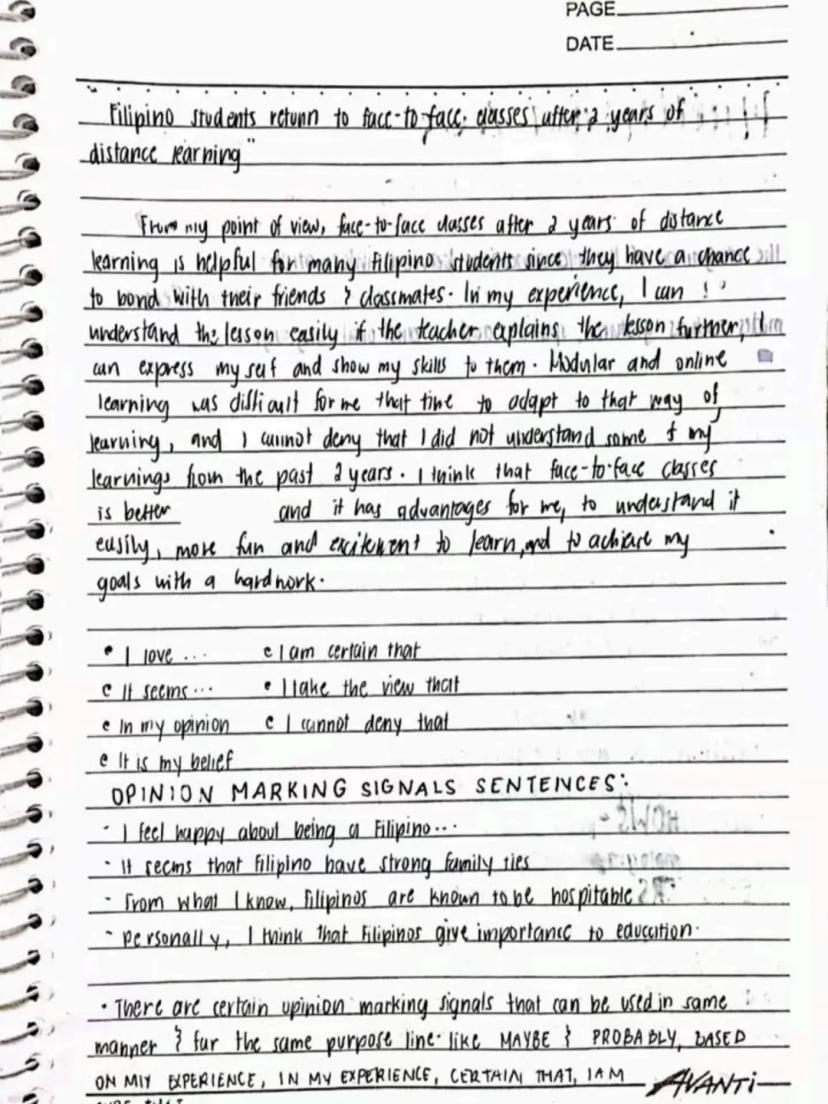 PAGE
DATE
Filipino students return to face-to-face classes after 2 years of
distance learning"
From my point of view, face-to-face classes after 2 years of distance
learning is helpful for many Filipino students since they have a chance
to bond with their friends & classmates. In my experience, I can
understand the lesson easily if the teacher explains the lesson further, I
can express my self and show my skills to them. Modular and online
learning was difficult for me that time to adapt to that way of
learning, and I cannot deny that I did not understand some of my
learnings from the past 2 years. I think that face-to-face classes
is better and it has advantages for me, to understand it
easily, more fun and excitement to learn, and to achieve my
goals with a hardwork.
• I love ... • I am certain that
• It seems ... • I take the view that
• In my opinion • I cannot deny that
• It is my belief
OPINION MARKING SIGNALS SENTENCES:
- I feel happy about being a Filipino...
- It seems that Filipino have strong family ties
- From what I know, Filipinos are known to be hospitable
- Personally, I think that Filipinos give importance to education.
• There are certain opinion marking signals that can be used in same
manner & for the same purpose line like MAYBE & PROBABLY, BASED
ON MIY EXPERIENCE, IN MY EXPERIENCE, CERTAIN THAT, I AM
AVANTi